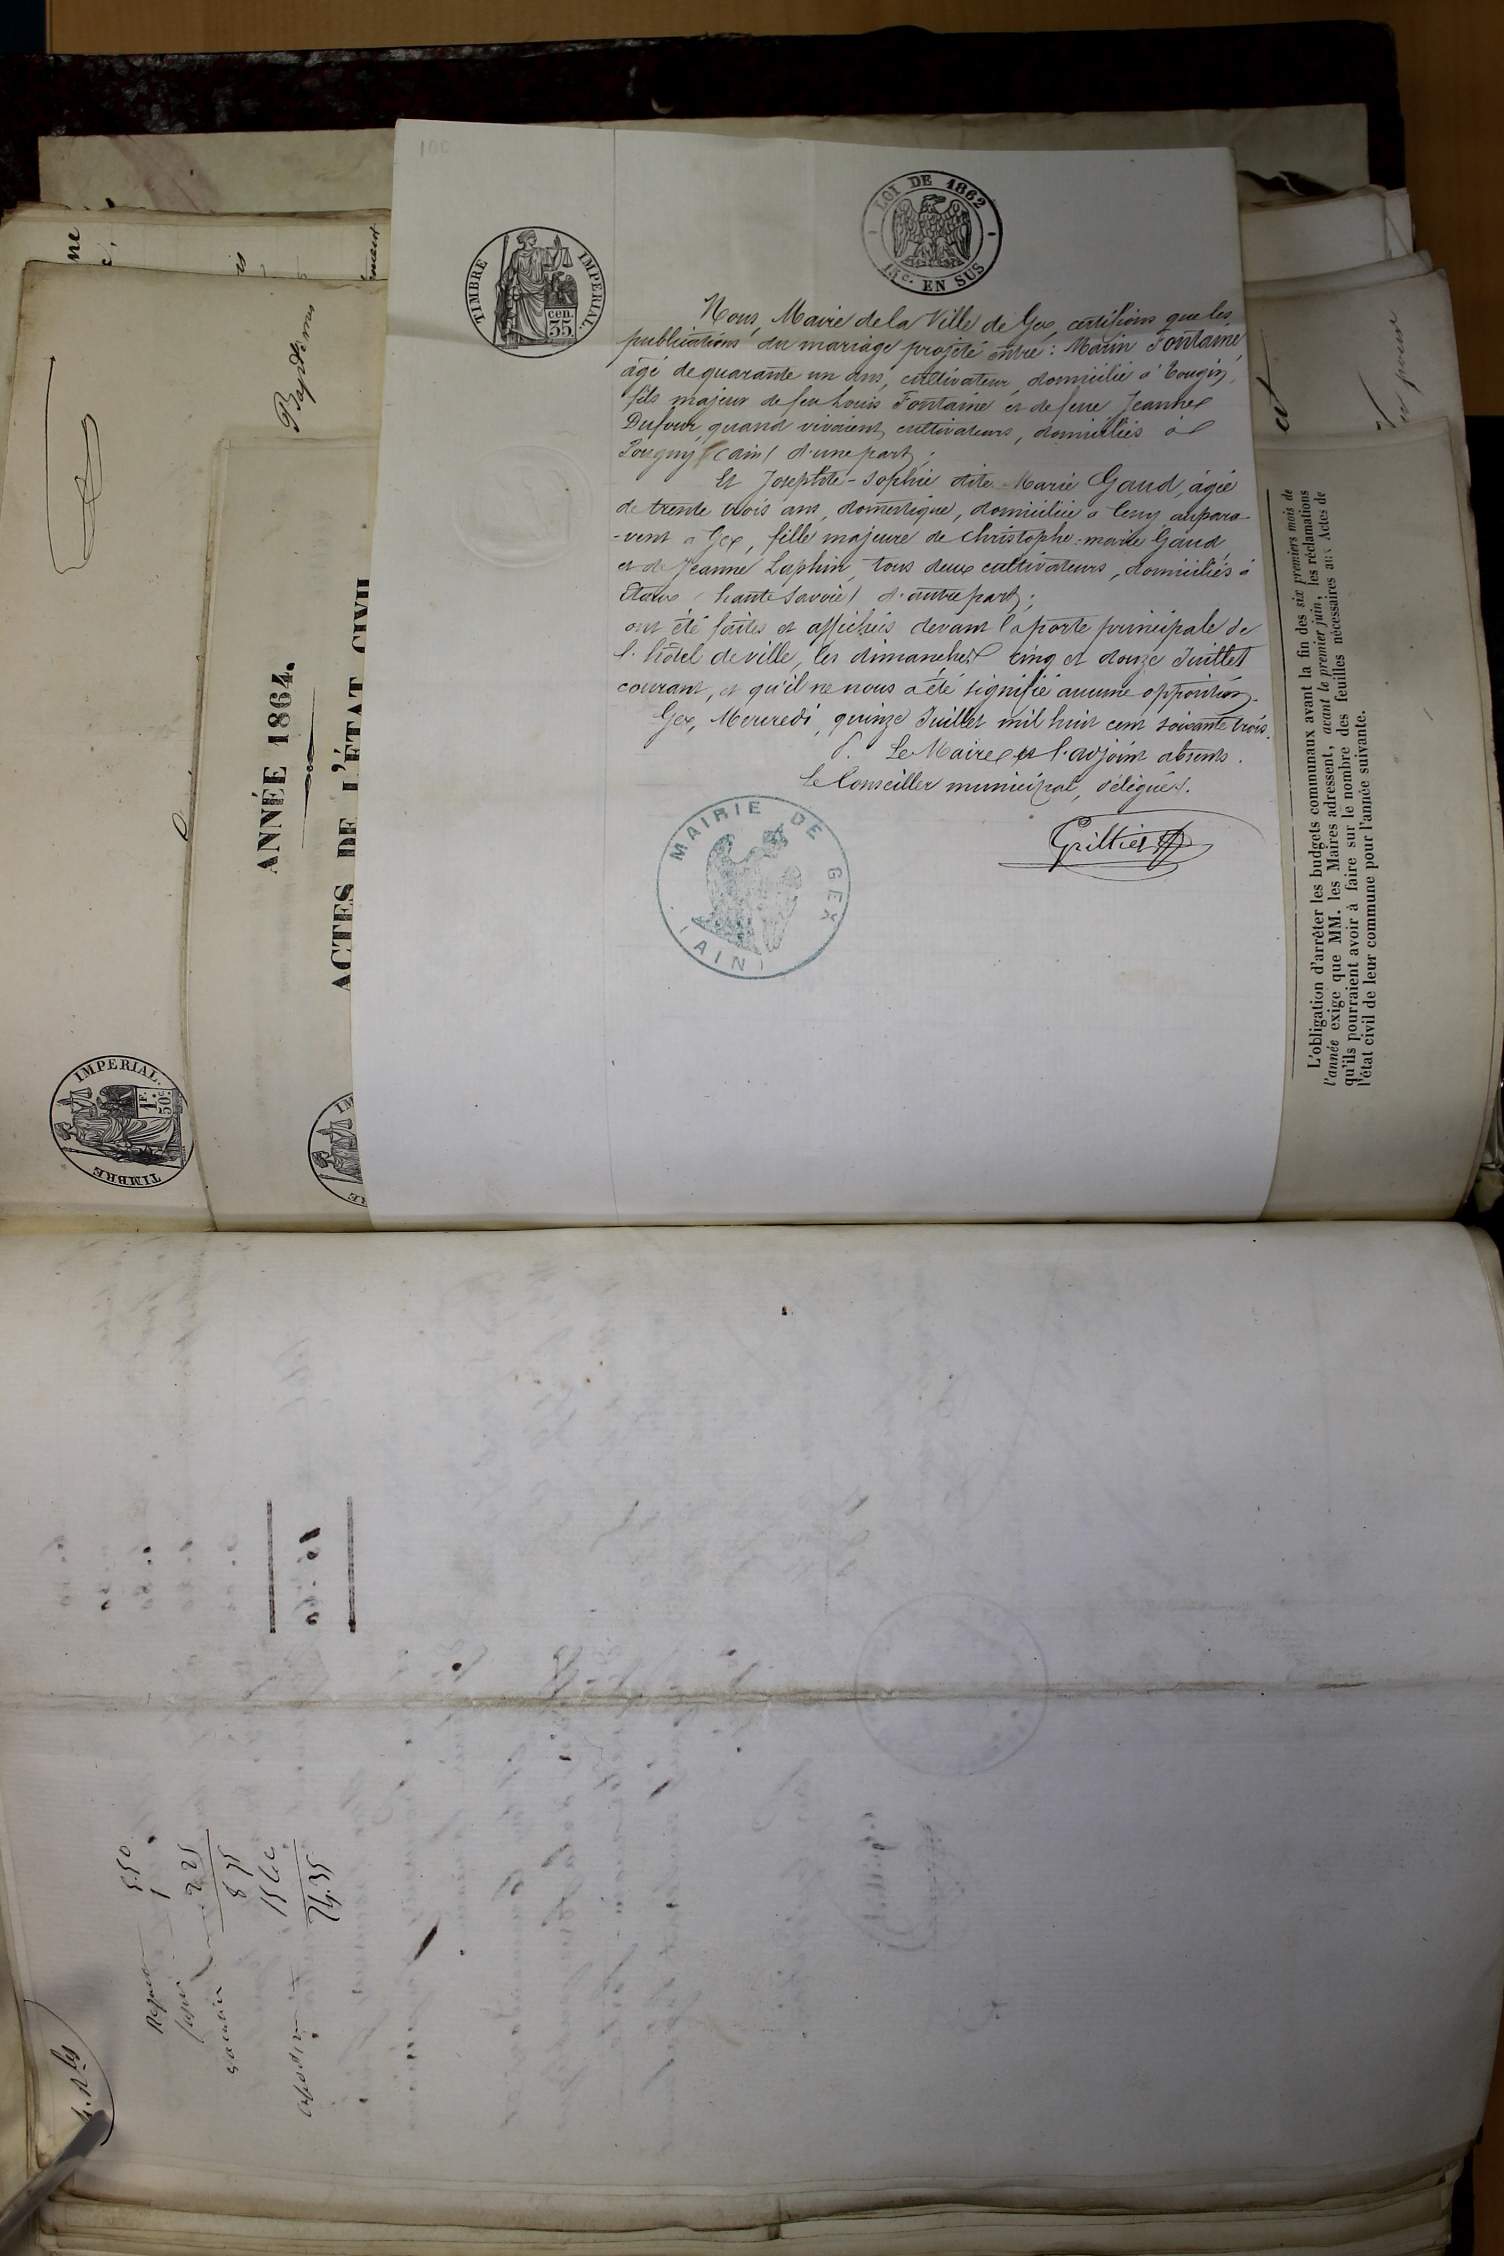 TIMBRE IMPERIAL.
cen.
35
LOI DE 1862
EN SUS
Nous, Maire de la Ville de Gex, certifions que les
publications du mariage projeté entre : Marin Fontaine,
âgé de quarante un ans, cultivateur, domicilié à Tougin,
fils majeur de feu Louis Fontaine et de feue Jeanne
Dufour, quand vivaient cultivateurs, domiciliés à
Pougny (ain) d'une part ;
Et Josephte-Sophie dite Marie Gaud, âgée
de trente trois ans, domestique, domiciliée à Cessy aupara-
-vent à Gex, fille majeure de Christophe-marie Gaud
et de Jeanne Laphin, tous deux cultivateurs, domiciliés à
Etaux (haute Savoie) d'autre part ;
ont été faites et affichées devant la porte principale de
l'hôtel de ville, les dimanches cinq et douze Juillet
courant, et qu'il ne nous a été signifié aucune opposition.
Gex, Mercredi, quinze Juillet mil huit cent soixante trois.
P. Le Maire et l'adjoint absents.
Le Conseiller municipal, délégué.
MAIRIE DE GEX
(AIN)
ANNÉE 1864.
ACTES DE L'ÉTAT CIVIL
TIMBRE IMPERIAL.
1F.
50c
L'obligation d'arrêter les budgets communaux avant la fin des six premiers mois de
l'année exige que MM. les Maires adressent, avant le premier juin, les réclamations
qu'ils pourraient avoir à faire sur le nombre des feuilles nécessaires aux Actes de
l'état civil de leur commune pour l'année suivante.
5.50
1
2 25
8 75
24.35